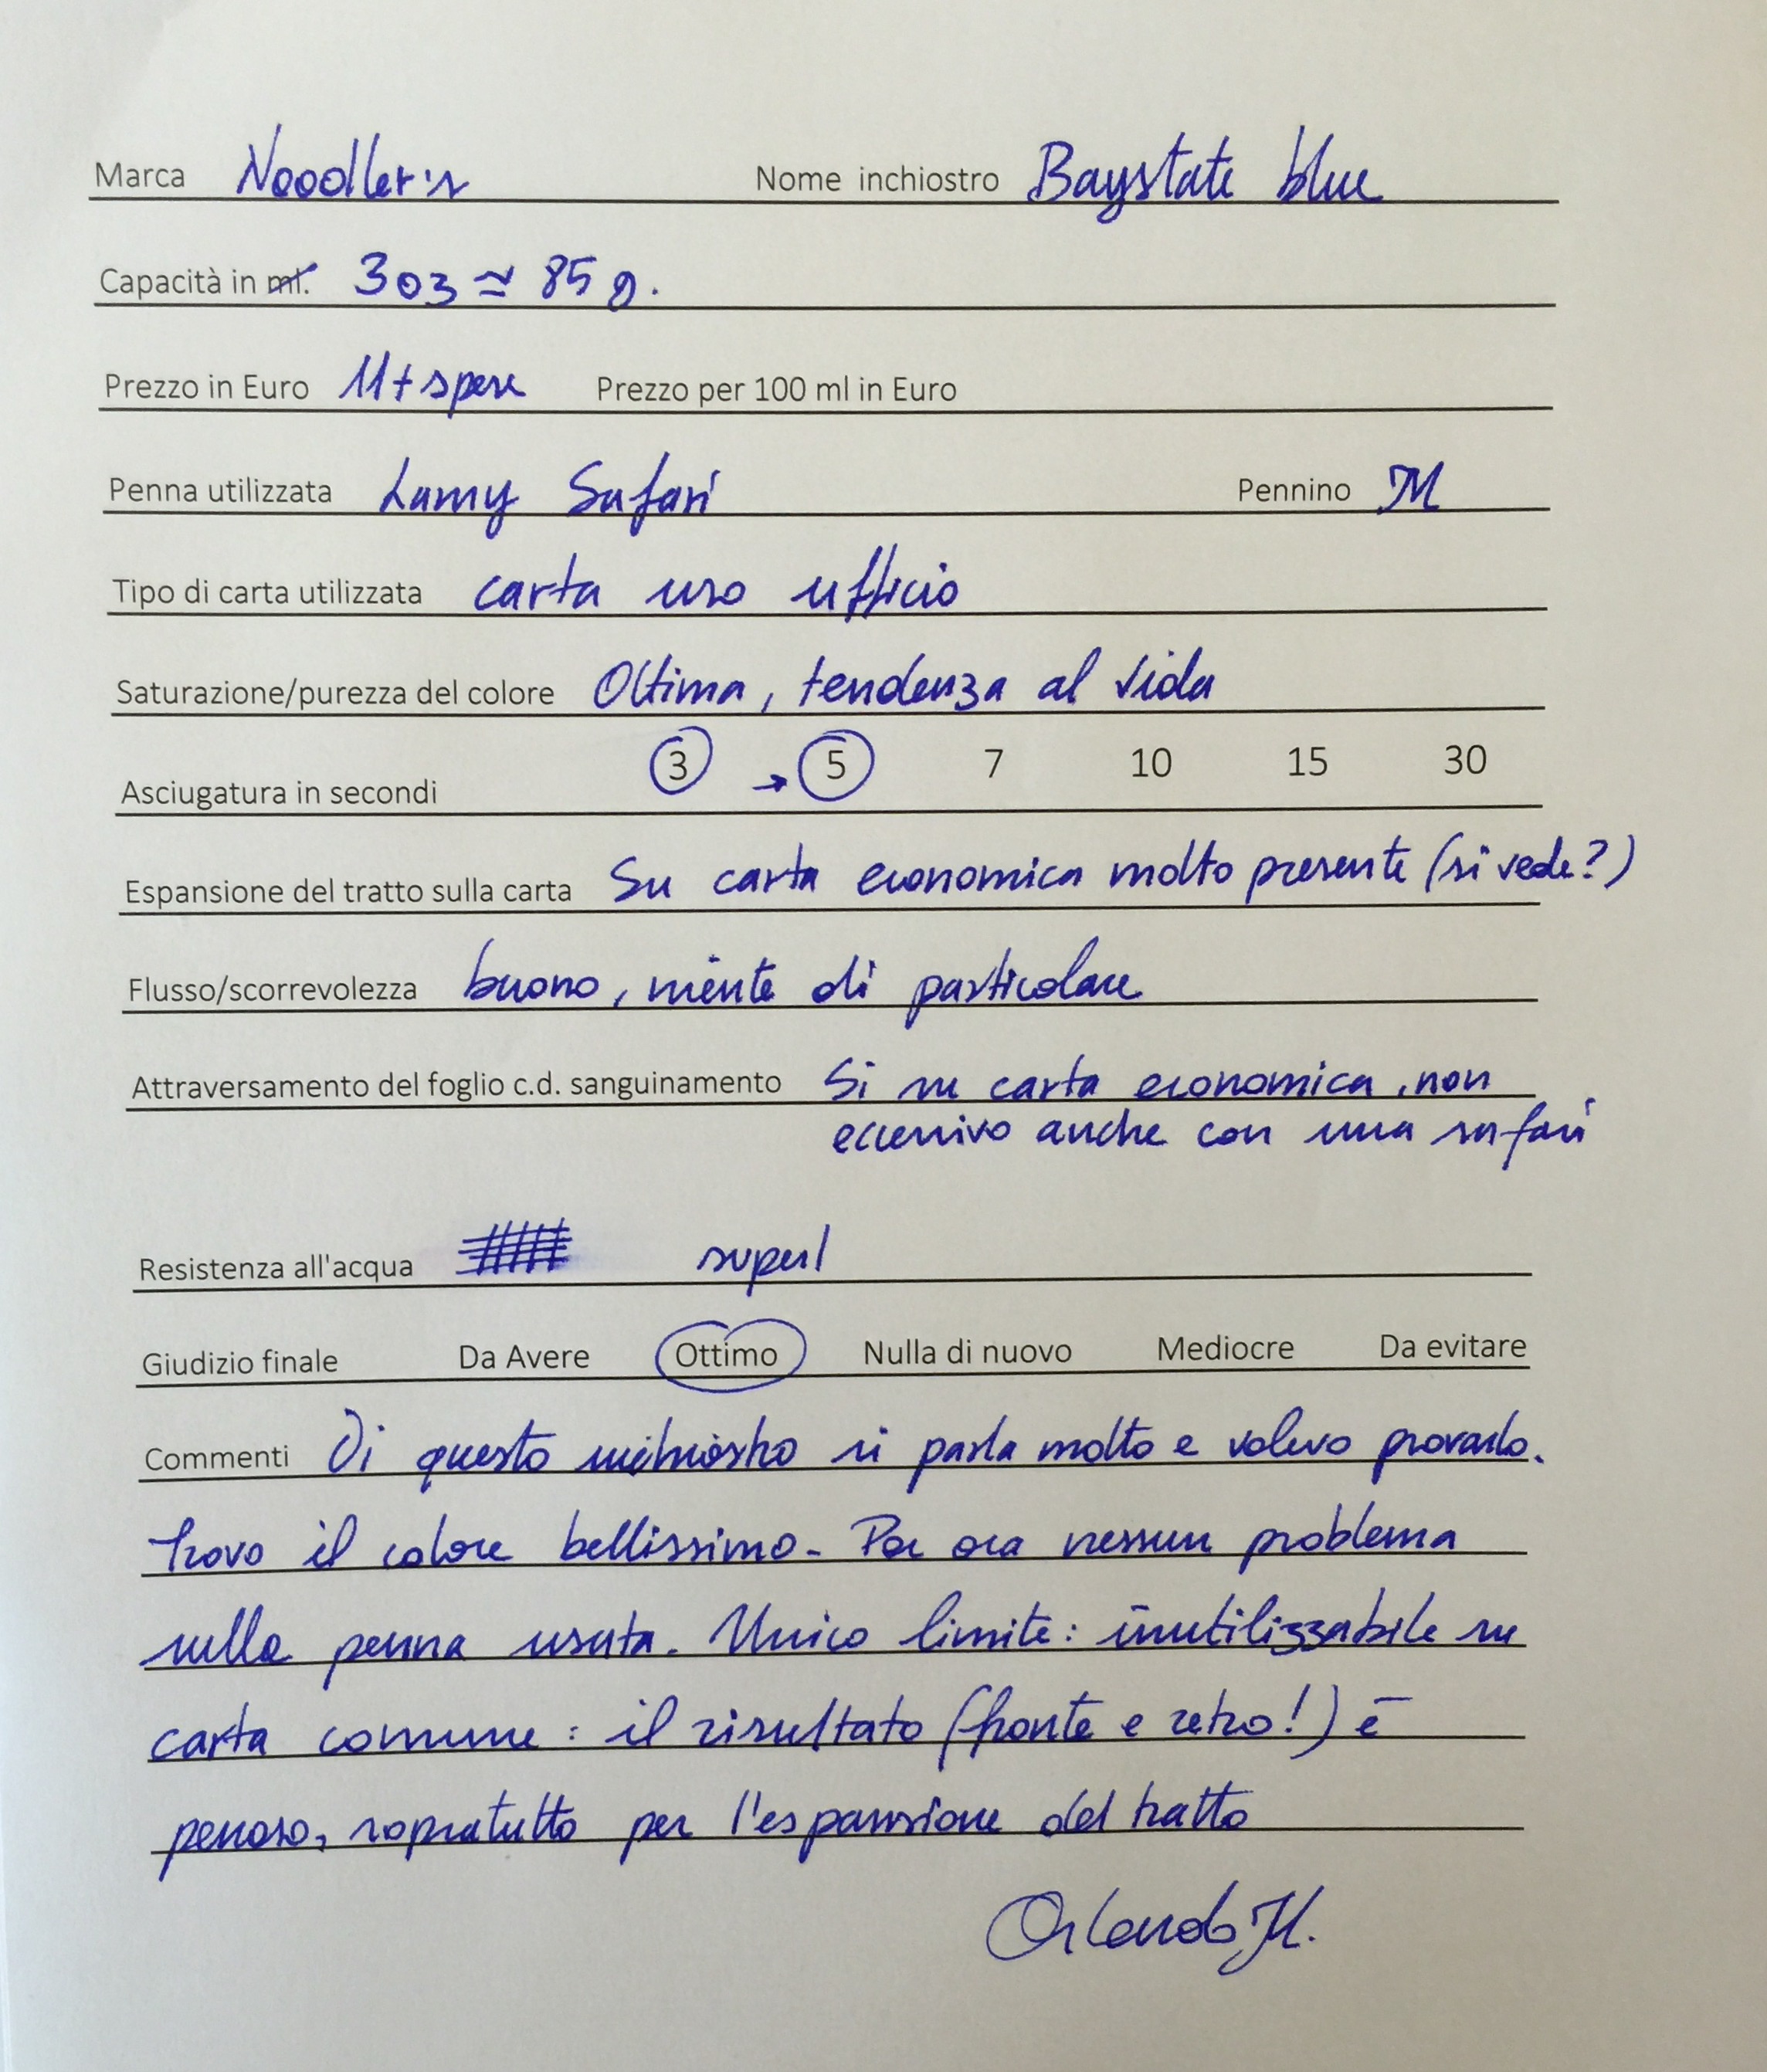 Marca Noodler's Nome inchiostro Baystate blue
Capacità in ml. 3oz ≃ 85 g.
Prezzo in Euro 11 + spese Prezzo per 100 ml in Euro
Penna utilizzata Lamy Safari Pennino M
Tipo di carta utilizzata carta uso ufficio
Saturazione/purezza del colore Ottima, tendenza al viola
3 → 5 7 10 15 30
Asciugatura in secondi
Espansione del tratto sulla carta Su carta economica molto presente (si vede?)
Flusso/scorrevolezza buono, niente di particolare
Attraversamento del foglio c.d. sanguinamento Si su carta economica, non
eccessivo anche con una safari
Resistenza all'acqua super!
Giudizio finale Da Avere Ottimo Nulla di nuovo Mediocre Da evitare
Commenti Di questo inchiostro si parla molto e volevo provarlo.
Trovo il colore bellissimo. Per ora nessun problema
sulla penna usata. Unico limite: inutilizzabile su
carta comune: il risultato (fronte e retro!) è
penoso, sopratutto per l'espansione del tratto
Orlando M.